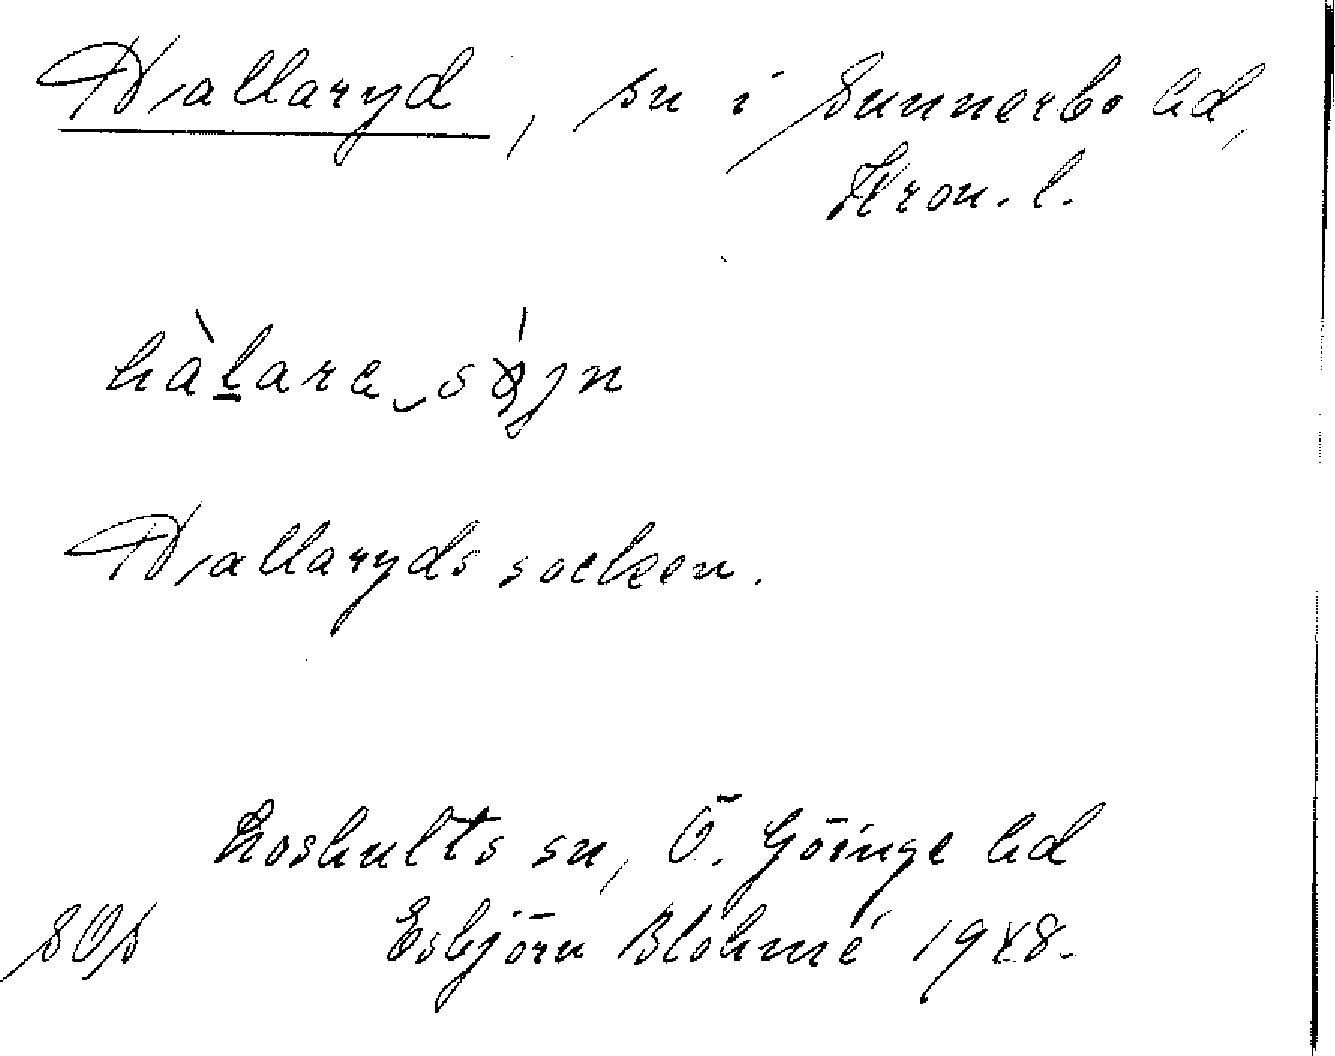 Hallaryd, sn i Sunnerbo hd,
Kron. l.
hàḻara sǿjn
Hallaryds socken.
Loshults sn, Ö. Göinge hd
SOS Esbjörn Blohmé 1948.